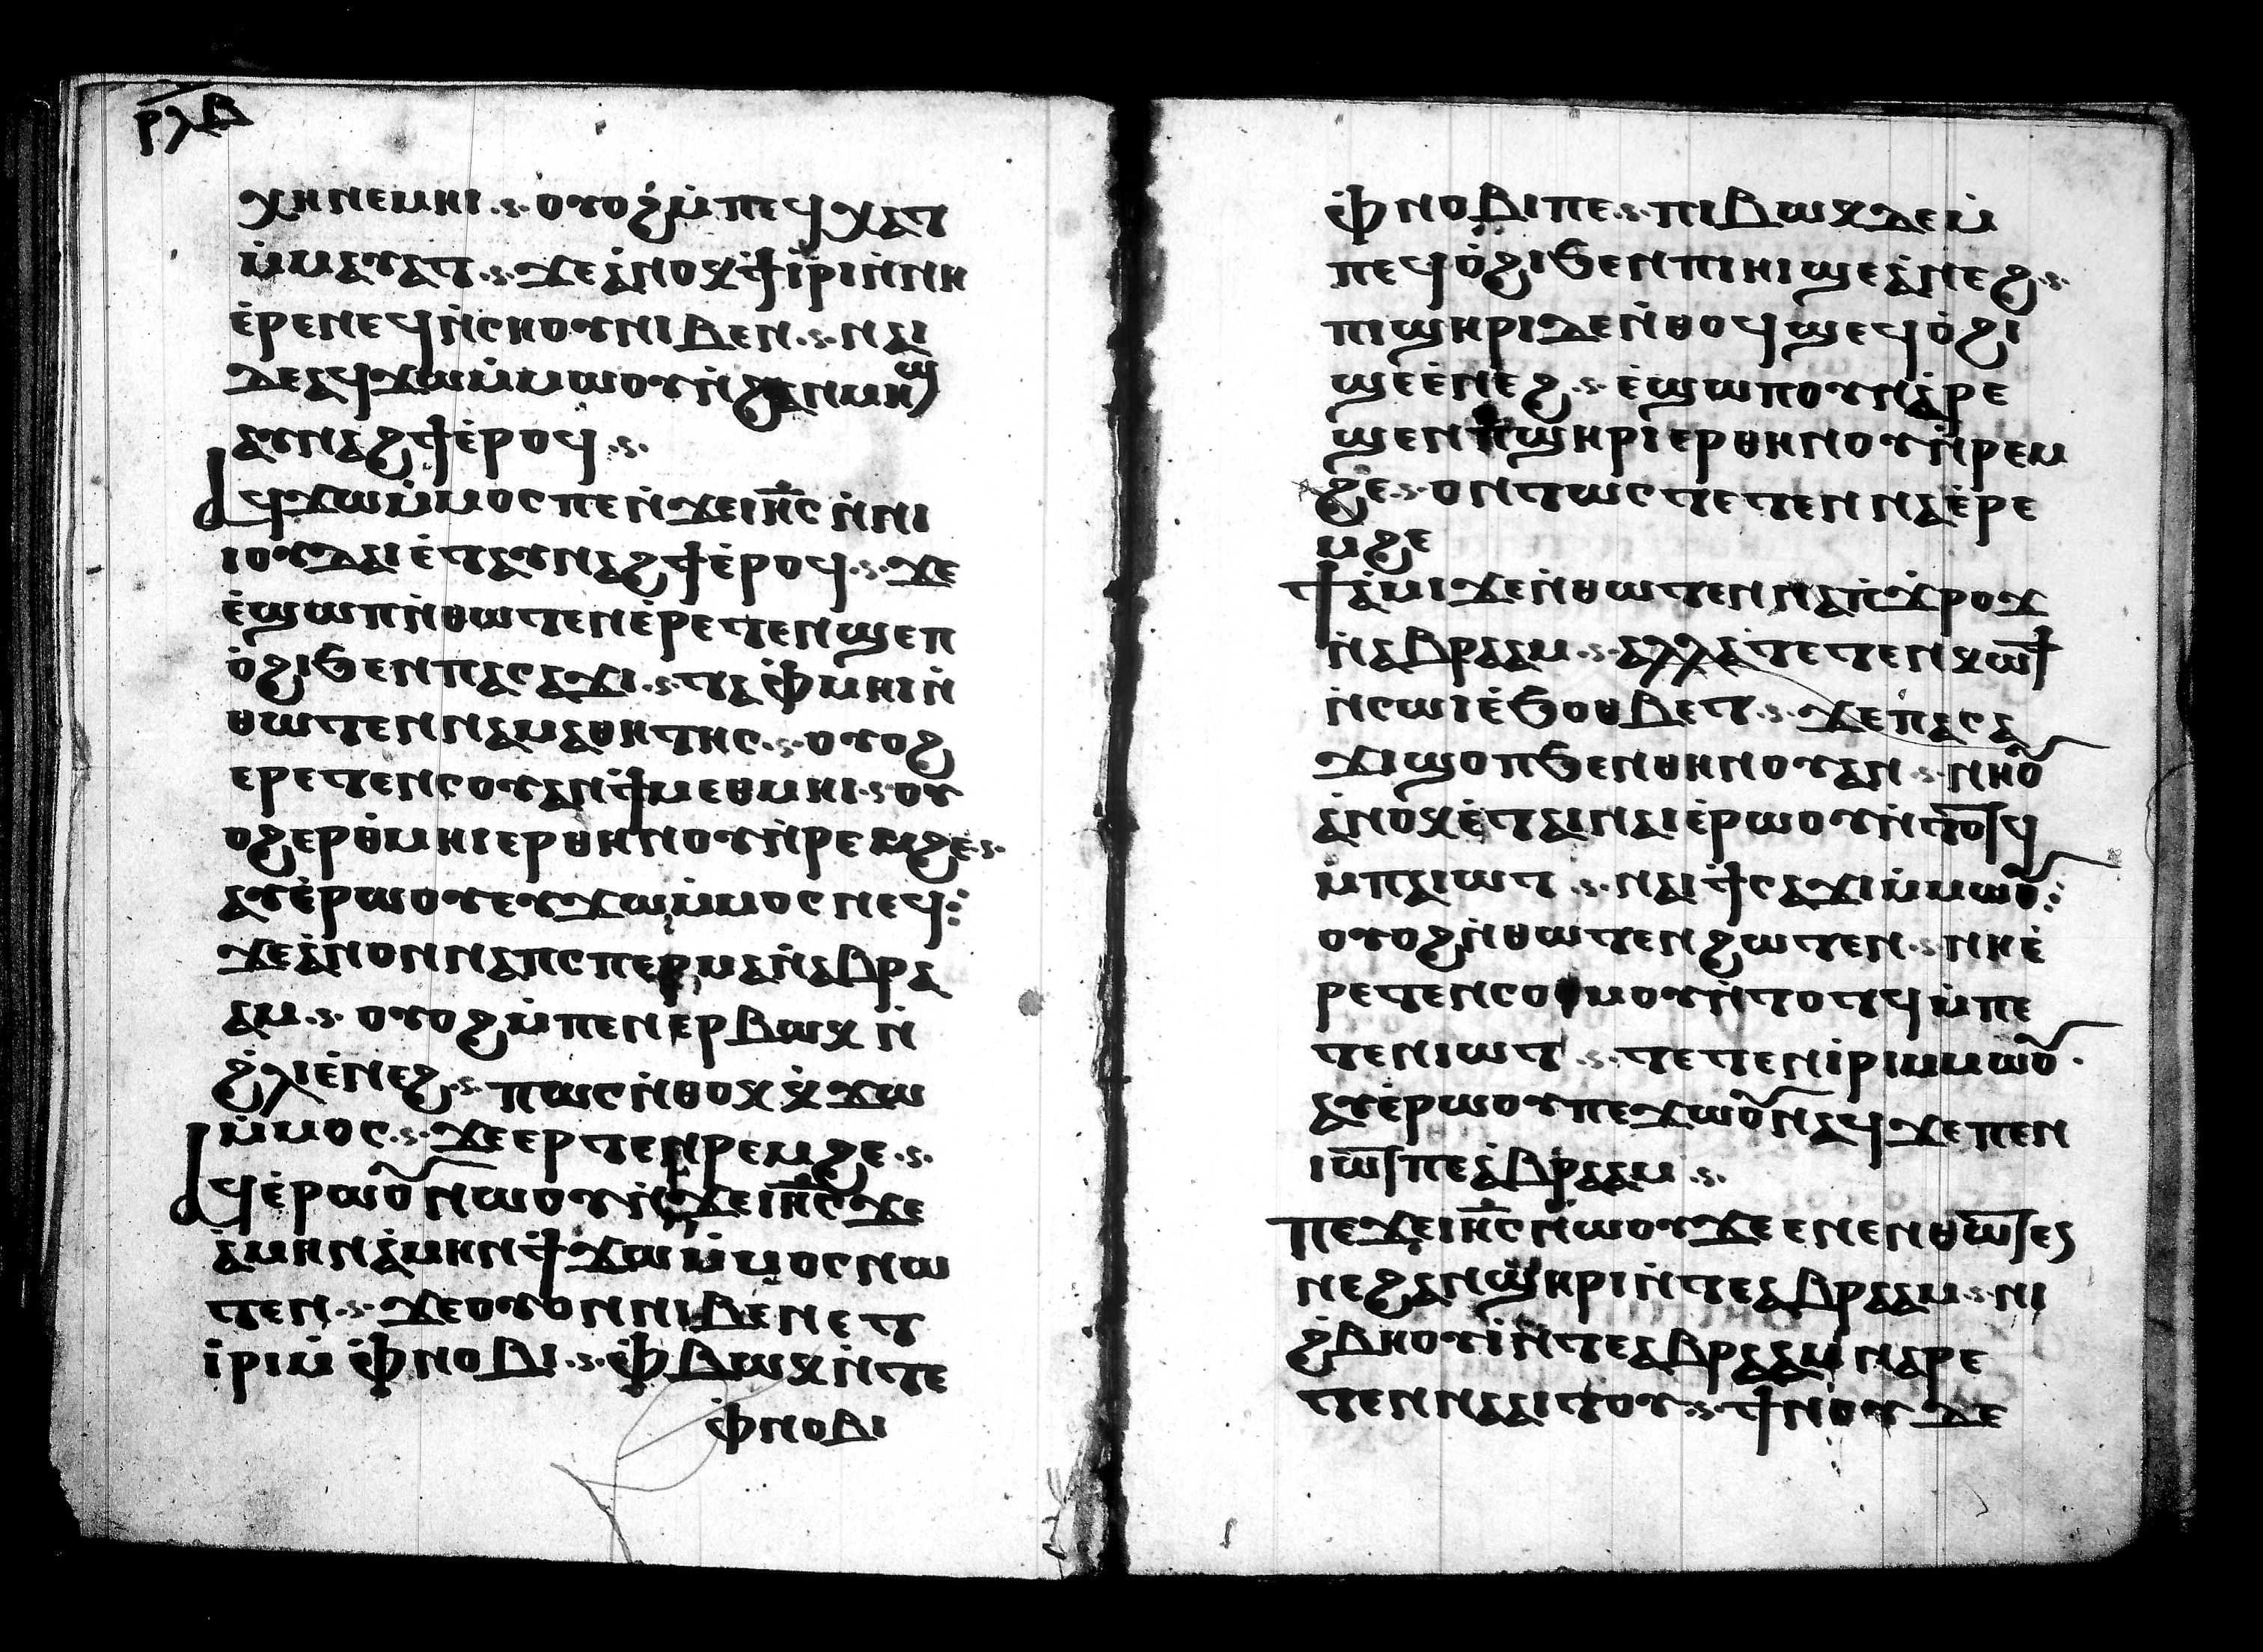 ⲣⲗⲃ
ⲭⲏ ⲛⲉⲙⲏⲓ ⲟⲩⲟϩ ⲙ̇ⲡⲉϥⲭⲁⲧ
ⲙ̇ⲙⲁⲩⲁⲧ ϫⲉ ⲁ̇ⲛⲟⲕ ϯⲓ̇ⲣⲓ ⲛ̇ⲛⲏ
ⲉ̇ⲣⲉⲛⲉϥ ⲛ̇ⲥⲏⲟⲩ ⲛⲓⲃⲉⲛ ⲛⲁⲓ
ⲇⲉ ⲁϥϫⲱ ⲙ̇ⲙⲱⲟⲩ ⲛ̇ϩⲁⲛⲙⲏϣ
ⲁⲩⲛⲁϩϯ ⲉ̇ⲣⲟϥ
ⲁϥϫⲱ ⲙ̇ⲙⲟⲥ ⲡⲉ ⲛ̇ϫⲉ ⲓⲏ̅ⲥ ⲛ̇ⲛⲓ
ⲓⲟⲩⲇⲁⲓ ⲉ̇ⲧⲁⲩⲛⲁϩϯ ⲉ̇ⲣⲟϥ ϫⲉ
ⲉ̇ϣⲱⲡ ⲛ̇ⲑⲱⲧⲉⲛ ⲉ̇ⲣⲉⲧⲉⲛϣⲉⲛ
ⲟ̇ϩⲓ ϧⲉⲛ ⲡⲁⲥⲁϫⲓ ⲧⲁⲫⲙⲏⲓ ⲛ̇
ⲑⲱⲧⲉⲛ ⲛⲁⲙⲁⲑⲏⲧⲏⲥ ⲟⲩⲟϩ
ⲉⲣⲉⲧⲉⲛⲥⲟⲩⲁⲛ ϯⲙⲉⲑⲙⲏⲓ ⲟⲩ
ⲟϩ ⲉⲣⲑ̇ⲙⲏⲓ ⲉⲣ ⲑⲏⲛⲟⲩ ⲛ̇ⲣⲉⲙϩⲉ
ⲁⲩⲉ̇ⲣⲱⲟⲩ ⲉⲩϫⲱ ⲙ̇ⲙⲟⲥ ⲛⲉϥ
ϫⲉ ⲁ̇ⲛⲟⲛ ⲛⲁⲡⲥⲡⲉⲣⲙⲁ ⲛ̇ⲁⲃⲣⲁ
ⲁⲙ ⲟⲩⲟϩ ⲙ̇ⲡⲉⲛⲉⲣⲃⲱⲕ ⲛ̇
ϩ̇ⲗⲓ ⲉ̇ⲛⲉϩ ⲡⲱⲥ ⲛ̇ⲑⲟⲕ ⲕ̇ϫⲱ
ⲙ̇ⲙⲟⲥ ϫⲉ ⲉⲣⲧⲉⲛⲣⲉⲙϩⲉ
ⲁϥⲉ̇ⲣⲱⲟ̅ ⲛⲱⲟⲩ ⲛ̇ϫⲉ ⲓⲏ̅ⲥ ϫⲉ
ⲁ̇ⲙⲏⲛ ⲁ̇ⲙⲏⲛ ϯϫⲱ ⲙ̇ⲙⲟⲥ ⲛⲱ
ⲧⲉⲛ ϫⲉ ⲟⲩⲟⲛ ⲛⲓⲃⲉⲛ ⲉⲧ
ⲓ̇ⲣⲓ ⲙ̇ⲫⲛⲟⲃⲓ ⲫⲃⲱⲕ ⲛ̇ⲧⲉ
ⲫⲛⲟⲃⲓ
ⲫ̇ⲛⲟⲃⲓ ⲡⲉ ⲡⲓⲃⲱⲕ ⲇⲉ ⲙ̇
ⲡⲉϥⲟ̇ϩⲓ ϧⲉⲛ ⲡⲓⲏⲓ ϣⲉⲁ̇ⲛⲉϩ
ⲡⲓϣⲏⲣⲓ ⲇⲉ ⲛ̇ⲑⲟϥ ϣⲉϥⲟ̇ϩⲓ
ϣⲉⲉ̇ⲛⲉϩ ⲉ̇ϣⲱⲡ ⲟⲩⲛ ⲁ̇ⲣⲉ
ϣⲉⲛ ⲡϣⲏⲣⲓ ⲉⲣ ⲑⲏⲛⲟⲩ ⲛ̇ⲣⲉⲙ
ϩⲉ ⲟⲛⲧⲱⲥ ⲧⲉⲧⲉⲛⲛⲁⲉ̇ⲣⲉ
ⲙϩⲉ
ϯⲁ̇ⲙⲓ ϫⲉ ⲛ̇ⲑⲱⲧⲉⲛ ⲛⲁⲡ̇ϫⲣⲟϫ
ⲛ̇ⲁⲃⲣⲁⲁⲙ ⲁⲗⲗⲁ ⲧⲉⲧⲉⲛⲕⲱϯ
ⲛ̇ⲥⲱⲓ ⲉ̇ϧⲟⲑⲃⲉⲧ ϫⲉ ⲡⲁⲥⲁ
ϫⲓ ϣⲟⲡ ϧⲉⲛ ⲑⲏⲛⲟⲩ ⲁⲛ ⲛⲏⲟ̅
ⲁ̇ⲛⲟⲕ ⲉ̇ⲧⲁⲓⲛⲁⲓ ⲉ̇ⲣⲱⲟⲩ ⲛ̇ⲧⲟⲧϥ
ⲙ̇ⲡⲁⲓⲱⲧ ⲛⲁⲓ ϯⲥⲁϫⲓ ⲙ̇ⲙⲱⲟ̅
ⲟⲩⲟϩ ⲛ̇ⲑⲱⲧⲉⲛ ϩⲱⲧⲉⲛ ⲛⲏⲉ̇
ⲣⲉⲧⲉⲛⲥⲟⲑⲙⲟⲩ ⲛ̇ⲧⲟⲧϥ ⲙ̇ⲡⲉ
ⲧⲉⲛⲓⲱⲧ ⲧⲉⲧⲉⲛⲓ̇ⲣⲓ ⲙⲙⲱⲟ̅
ⲁⲩⲉ̇ⲣⲱⲟⲩ ⲡⲉϫⲱⲟ̅ ⲛⲁϥ ϫⲉ ⲡⲉⲛ
ⲓⲱⲧ ⲡⲉ ⲁ̇ⲃⲣⲁⲁⲙ
ⲡⲉϫⲉ ⲓⲏ̅ⲥ ⲛⲱⲟⲩ ϫⲉ ⲉⲛⲉ ⲛⲑⲱⲧⲉ
ⲛⲉ ϩⲁⲛϣⲏⲣⲓ ⲛ̇ⲧⲉ ⲁⲃⲣⲁⲁⲙ ⲛⲓ
ϩ̇ⲃⲏⲟⲩⲓ̇ ⲛ̇ⲧⲉ ⲁⲃⲣⲁⲁⲙ ⲛⲁⲣⲉ
ⲧⲉⲛⲛⲁⲁⲓⲧⲟⲩ ϯⲛⲟⲩ ⲇⲉ